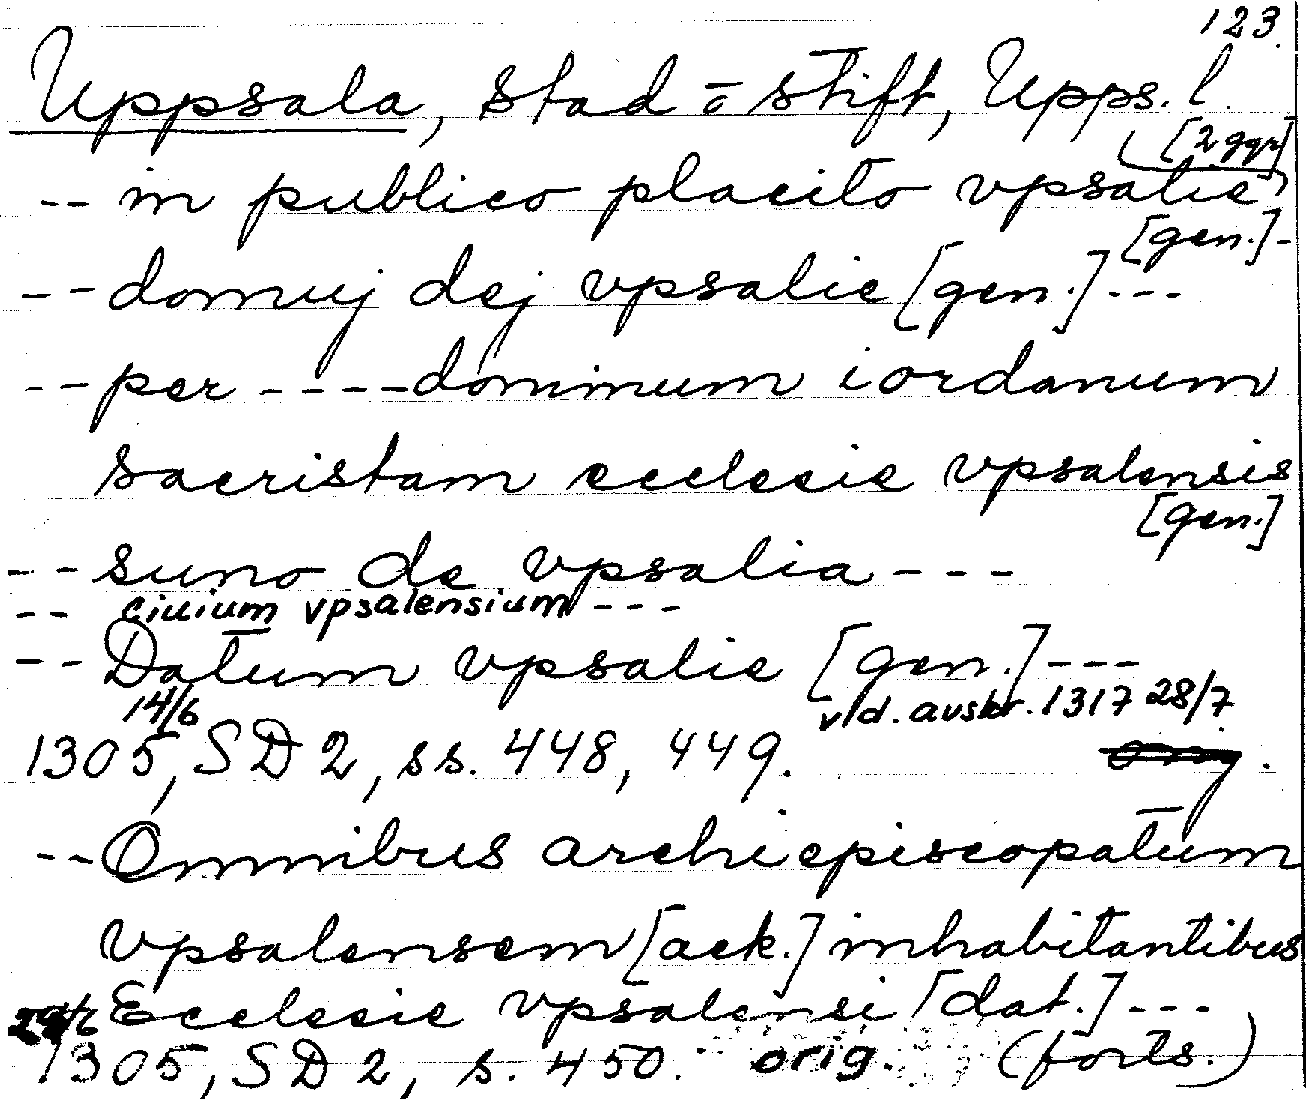 123.
Uppsala, stad o stift, Upps. l.
[2 ggr]
-- in publico placito vpsalie
[gen.]-
-- domuj dej vpsalie [gen.]---
-- per ----dominum iordanum
sacristam ecclesie vpsalensis
[gen.]
-- suno de vpsalia ---
-- ciuium vpsalensium ---
-- Datum vpsalie [gen.]---
14/6 vid. avskr. 1317 28/7
1305, SD 2, ss. 448, 449. orig.
-- Omnibus archiepiscopatum
vpsalensem [ack.] inhabitantibus
Ecclesie vpsalensi [dat.]---
1305, SD 2, s. 450. orig. (forts.)